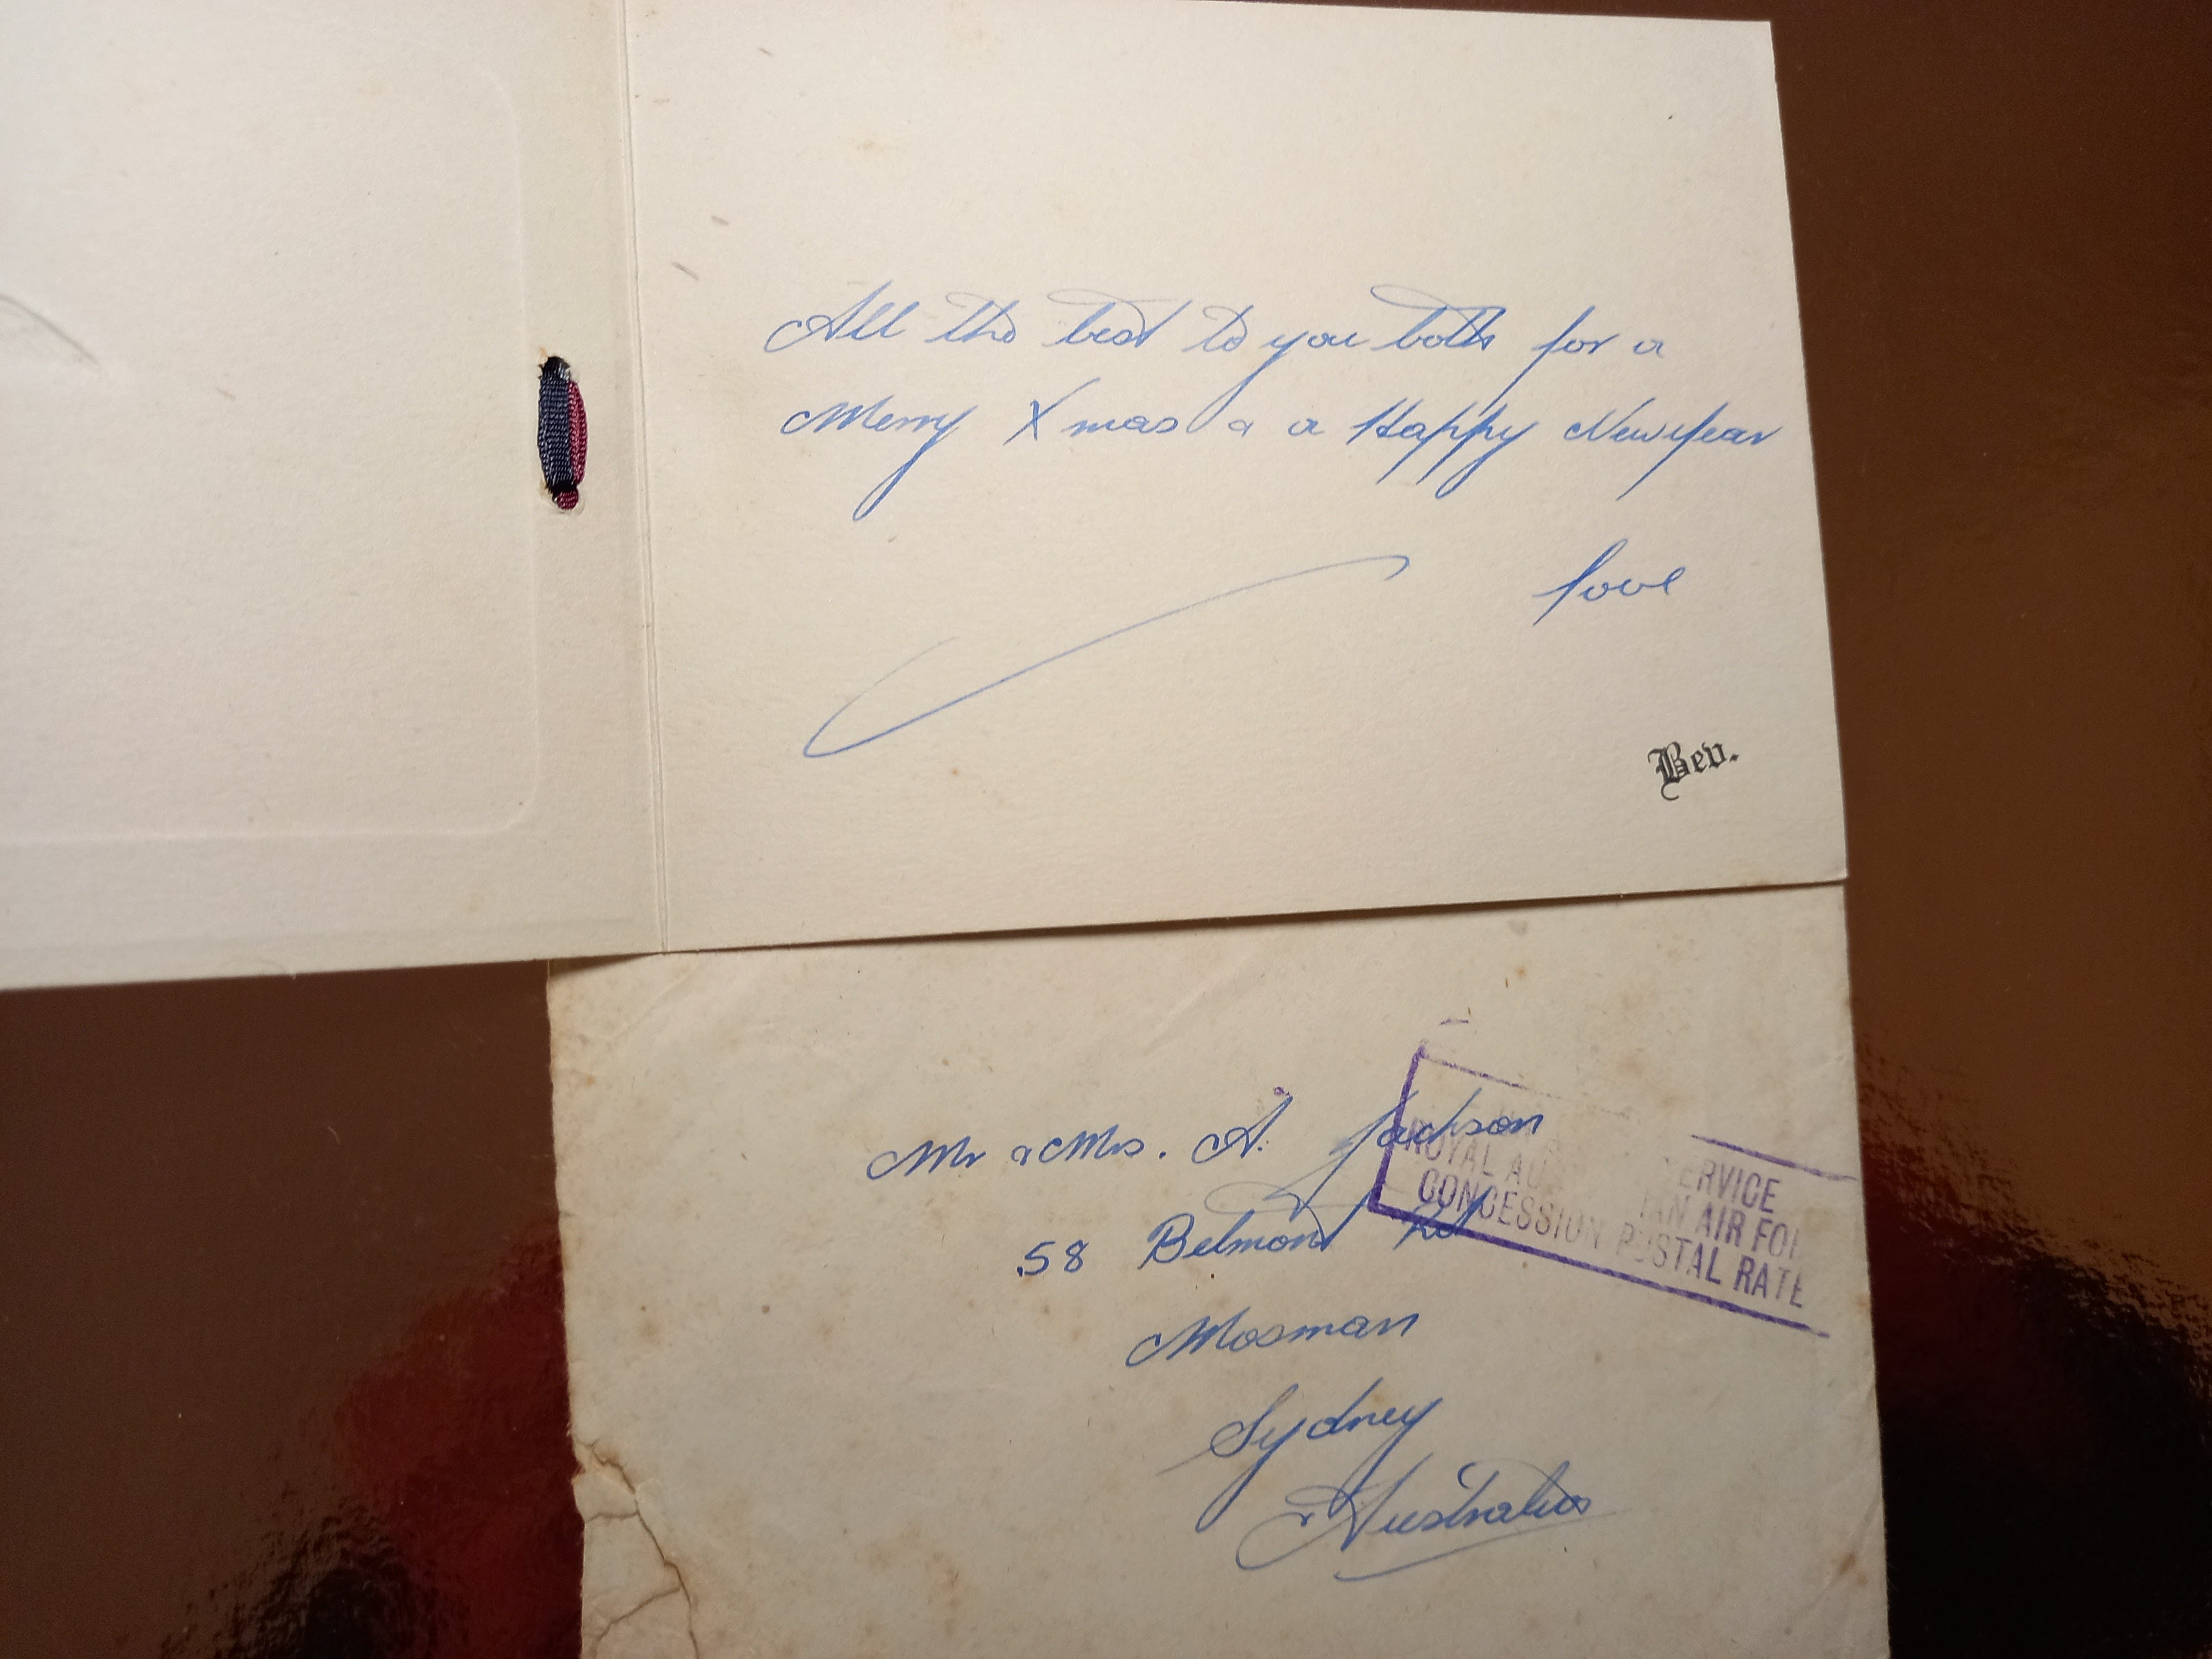 All the best to you both for a
Merry Xmas & a Happy New year
love
Bev.
Mr & Mrs. A. Jackson
58 Belmont Rd
Mosman
Sydney
Australia
ERVICE
ROYAL AU AN AIR FOR
CONCESSION POSTAL RATE